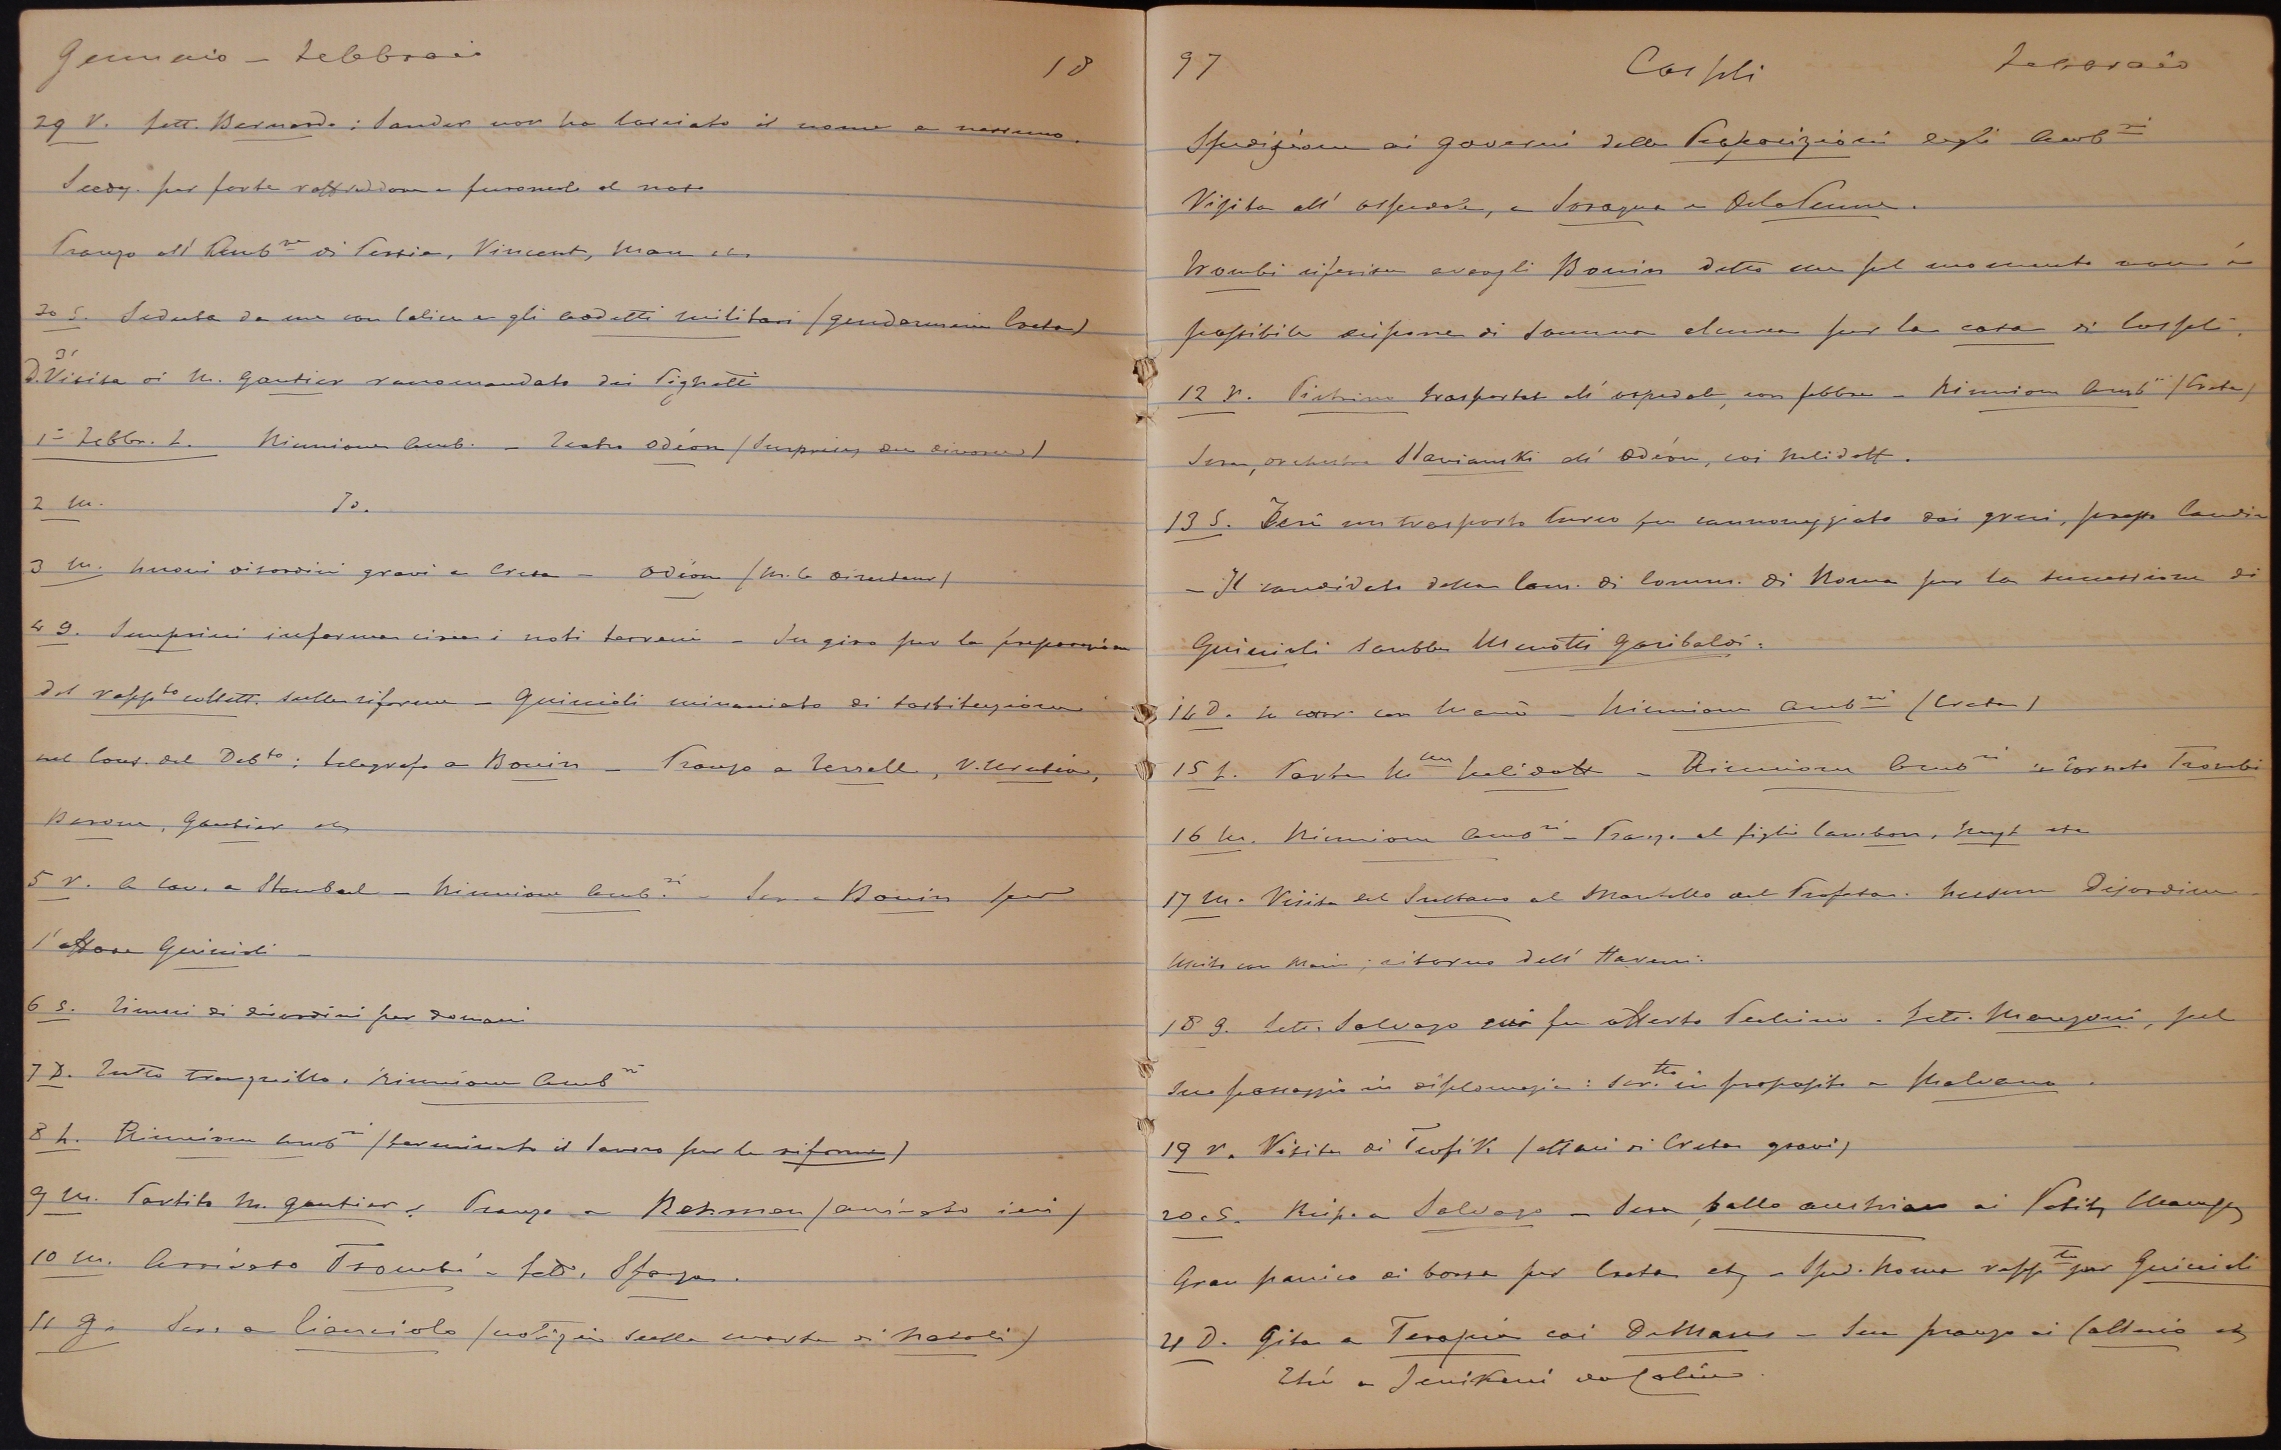 Gennaio – Febbraio 18
29 V. Lett. Bernardo: Sander non ha lasciato il nome a nessuno.
per forte raffreddore e foruncolo al naso
Pranzo all' Amb.re di Persia, Vincent, etc.
30 S. Seduta da me con Calice e gli addetti militari (gendarmeria Creta)
31 D. Visita di M. Gautier raccomandato dai Pignatti
1° Febbr. L. Riunione Amb. – Teatro Odéon (Surprises du divorce)
2 M. Id.
3 M. Nuovi disordini gravi a Creta – Odéon (M. le Directeur)
4 G. Semprini informa circa i noti terreni – In giro per la preparazione
del rapp.to collett. sulle riforme – Guicioli minacciato di sostituzione
nel Cons. del Deb.to: telegrafo a Bonin – Pranzo a
Barone, Gautier etc
5 V. A Stambul – Riunione Amb.ri – Bonin per
l'affare Guicioli –
6 S. Timori di disordini per domani
7 D. Tutto tranquillo. Riunione Amb.ri
8 L. Riunione Amb.ri (terminato il lavoro per le riforme)
9 M. Partito M. Gautier. Pranzo a Rehman (arrivato ieri)
10 M. Arrivato Trombi – Lett. Sforza.
11 G. Sera a Cianciolo (notizia della morte di Nasoli)
97 Cospli Febbraio
Spedizione ai governi delle Proposizioni degli Amb.ri
Visita all' ospedale, a Soragna e Dela Penne.
Trombi riferisce avergli Bonin detto che pel momento non è
possibile disporre di somma alcuna per la casa di Cospli.
12 V. Pietrino trasportato all' ospedale, con febbre – Riunione Amb.ri (Creta)
Sera, orchestra Slavianski all' Odéon, coi Melidott.
13 S. Ieri un trasporto turco fu cannoneggiato dai greci, presso Candia
– Il candidato della Cam. di Comm. di Roma per la successione di
Guicioli sarebbe Menotti Garibaldi.
14 D. con Manú – Riunione Amb.ri (Creta)
15 L. Parte M.me Melidott – Riunione Amb.ri – tornato Trombi
16 M. Riunione Amb.ri – Pranzo al figlio Cambon, etc
17 M. Visita del Sultano al Mantello del Profeta. Nessun Disordine –
Uscito con ; ritorno dell' Harem.
18 G. Lett. Salvago cui fu offerto Pechino – Lett. Mangoni, pel
suo passaggio in diplomazia: scritto in proposito a Malvano.
19 V. Visita di Teufik (affari di Creta gravi)
20 S. Risp. a Salvago – Sera, ballo austriaco ai Petits Champs
Gran panico di borsa per Creta etc – Sped. Roma rapp.to per Guicioli
21 D. Gita a Terapia coi DeMars – pranzo ai etc
Thé a Jenikeni da Calice.